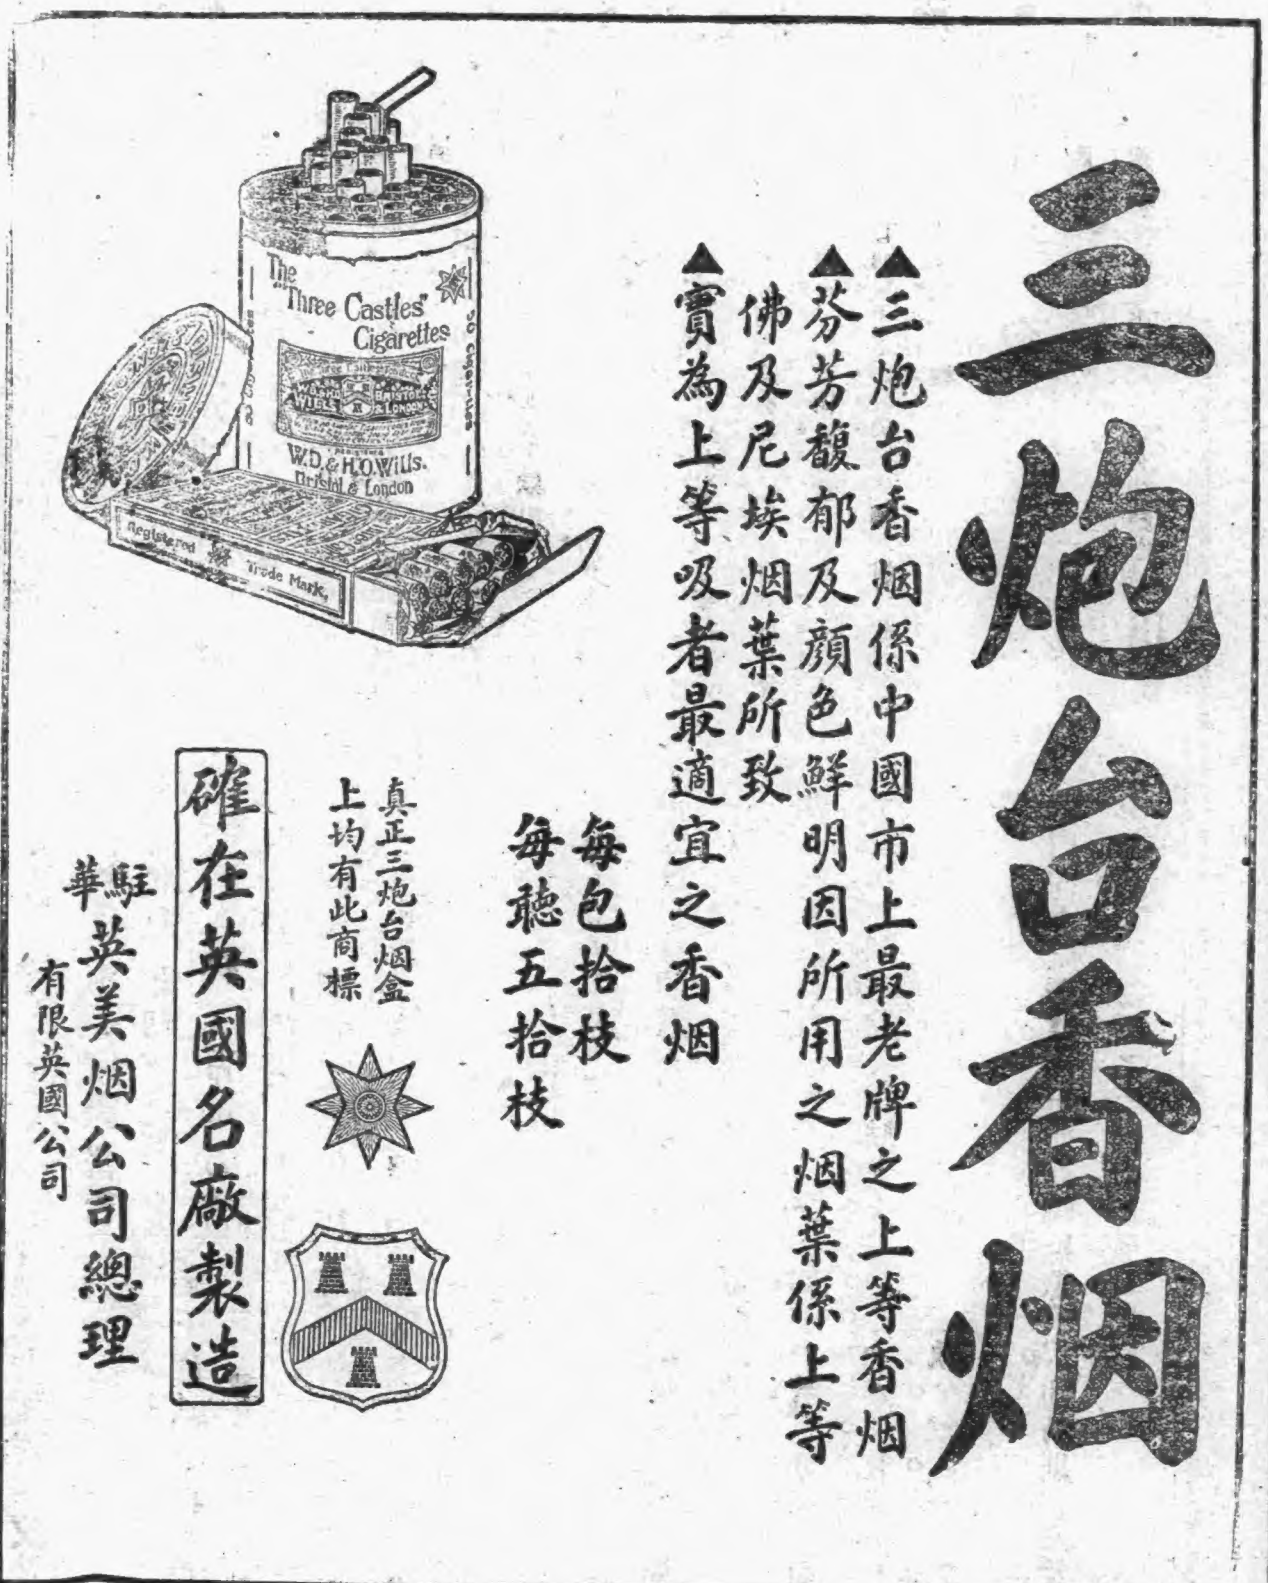 三炮台香烟
▲三炮台香烟係中國市上最老牌之上等香烟
▲芬芳馥郁及顔色鮮明因所用之烟葉係上等
佛及尼埃烟葉所致
▲實為上等吸者最適宜之香烟
每包拾枝
每聽五拾枝
The
"Three Castles"
Cigarettes
50 Cigarettes
WILLS
BRISTOL
& LONDON
W.D. & H.O. Wills.
Bristol & London
Registered Trade Mark,
真正三炮台烟盒
上均有此商標
確在英國名廠製造
駐華英美烟公司總理
有限英國公司